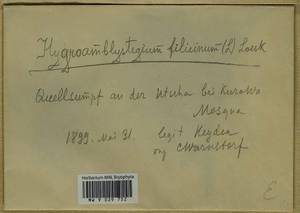 Hygroamblystegium filicinum (L) Loesk
Quellsumpf an der Utscha bei Kurakovo
Mosqua
1899. Mai 31. legit Heyden
Warnstorf
E
Herbarium MW, Bryophyta
MW 9 029 752